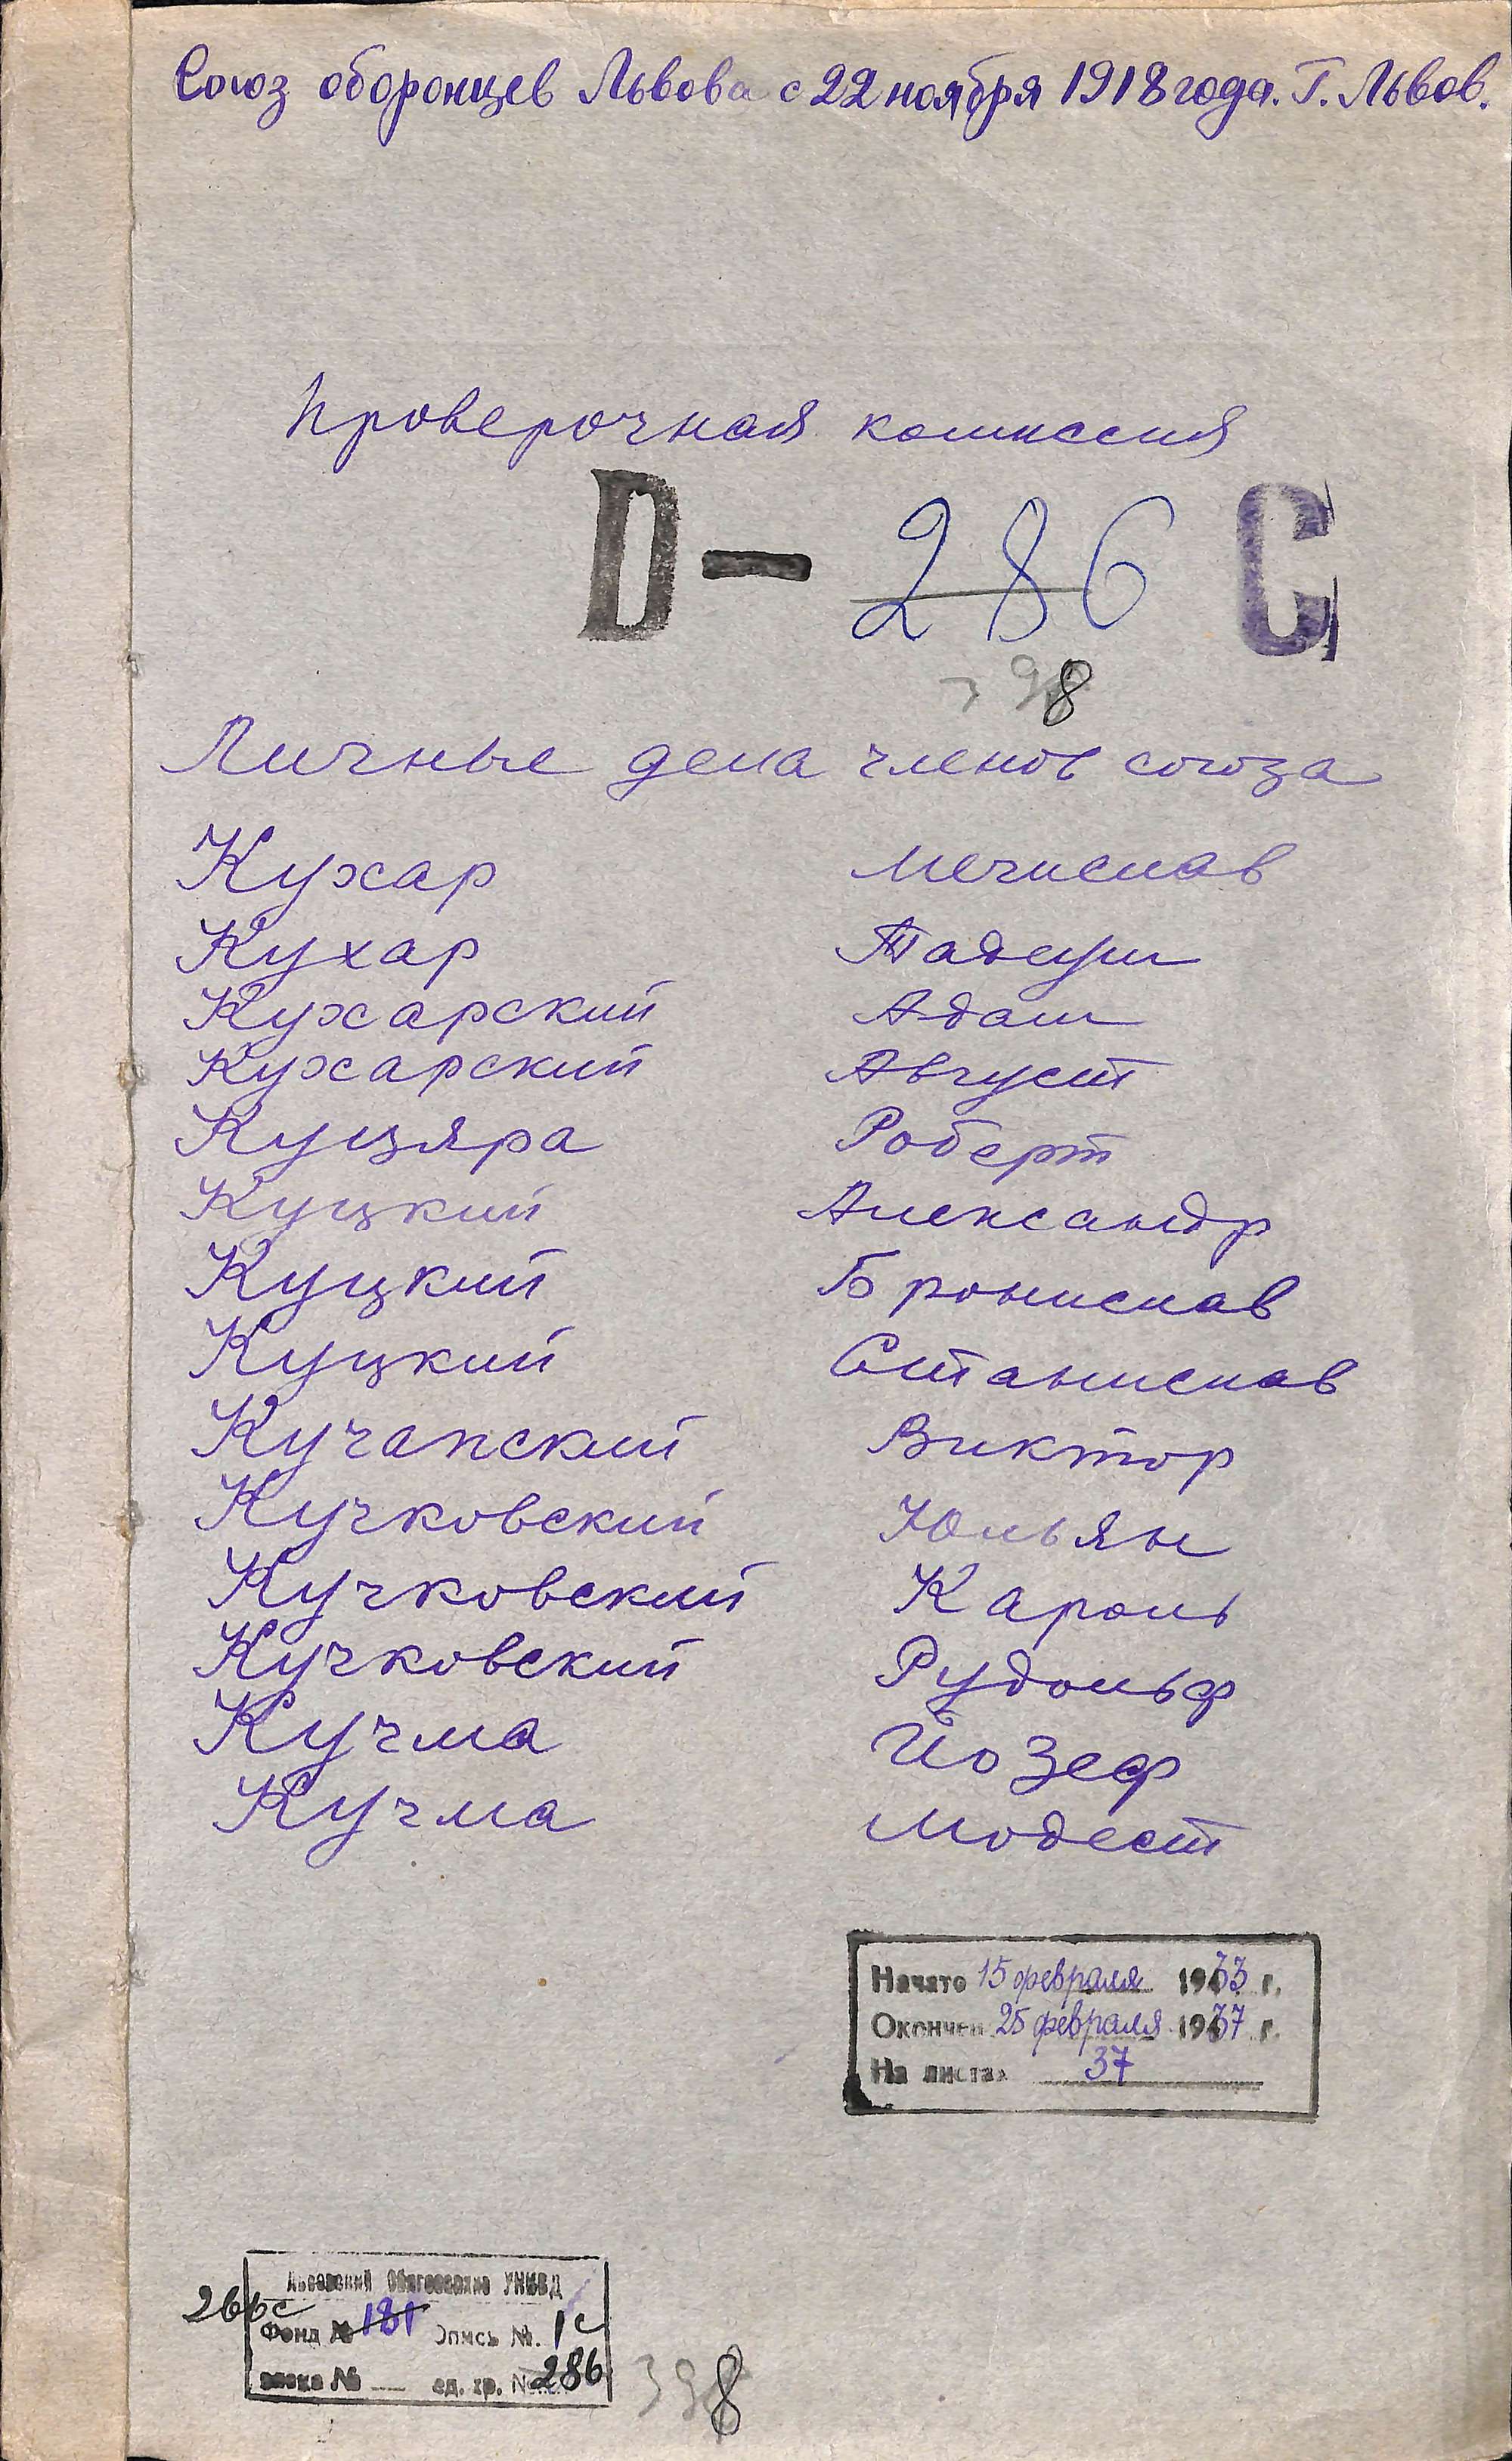 Союз оборонцев Львова с 22 ноября 1918 года. Г. Львов.
Проверочная комиссия
D— 286 С
398
Личные дела членов союза
Кухар Мечислав
Кухар Тадеуш
Кухарский Адам
Кухарский Август
Куцяра Роберт
Куцкий Александр
Куцкий Бронислав
Куцкий Станислав
Кучапский Виктор
Кучковский Юльян
Кучковский Кароль
Кучковский Рудольф
Кучма Йозеф
Кучма Модест
Начато 15 февраля 1933 г.
Окончен 25 февраля 1937 г.
На листах 37
Львовский Облгосархив УНКВД
266с
Фонд № 181 Опись №. 1с
№ ед. хр. № 286
398